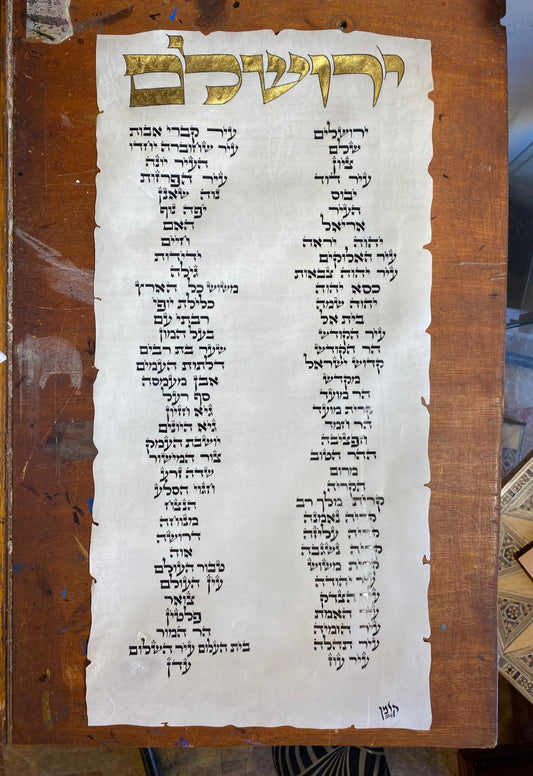 ירושלם
ירושלים
שלם
ציון
עיר דוד
יבוס
העיר
אריאל
יהוה יראה
עיר האלוקים
עיר יהוה צבאות
כסא יהוה
יהוה שמה
בית אל
עיר הקודש
הר הקודש
קדוש ישראל
מקדש
הר מועד
קרית מועד
הר חמד
חפציבה
ההר הטוב
מרום
הקריה
קרית מלך רב
קריה נאמנה
קריה עליזה
קריה נשגבה
קרית משוש
עיר יהודה
עיר הצדק
עיר האמת
עיר הומיה
עיר תהלה
עיר עוז
עיר קברי אבות
עיר שחוברה יחדו
העיר יונה
עיר הפרזות
נוה שאנן
יפה נוף
האם
חיים
ידידות
גולה
משוש כל הארץ
כלילת יופי
רבתי עם
בעל המון
שער בת רבים
דלתות העמים
אבן מעמסה
סף רעל
גיא חזיון
גיא
יושבת העמק
צור המישור
שדה זרע
חגוי הסלע
הנצח
מנוחה
דרושה
אוה
טבור העולם
עין העולם
צואר
פלטין
הר המור
בית העלום עיר השלום
עדן
קלמן